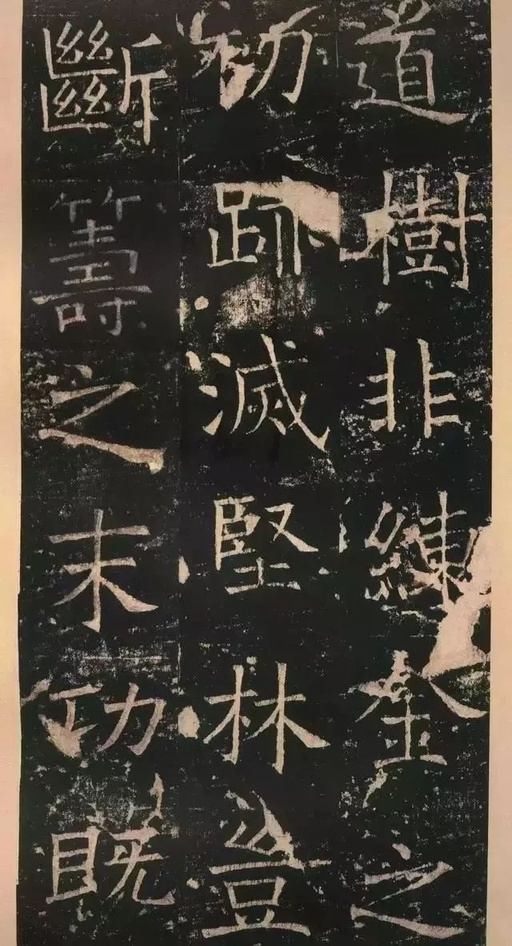 道樹非練金之
初跡滅堅林豈
斷籌之末功